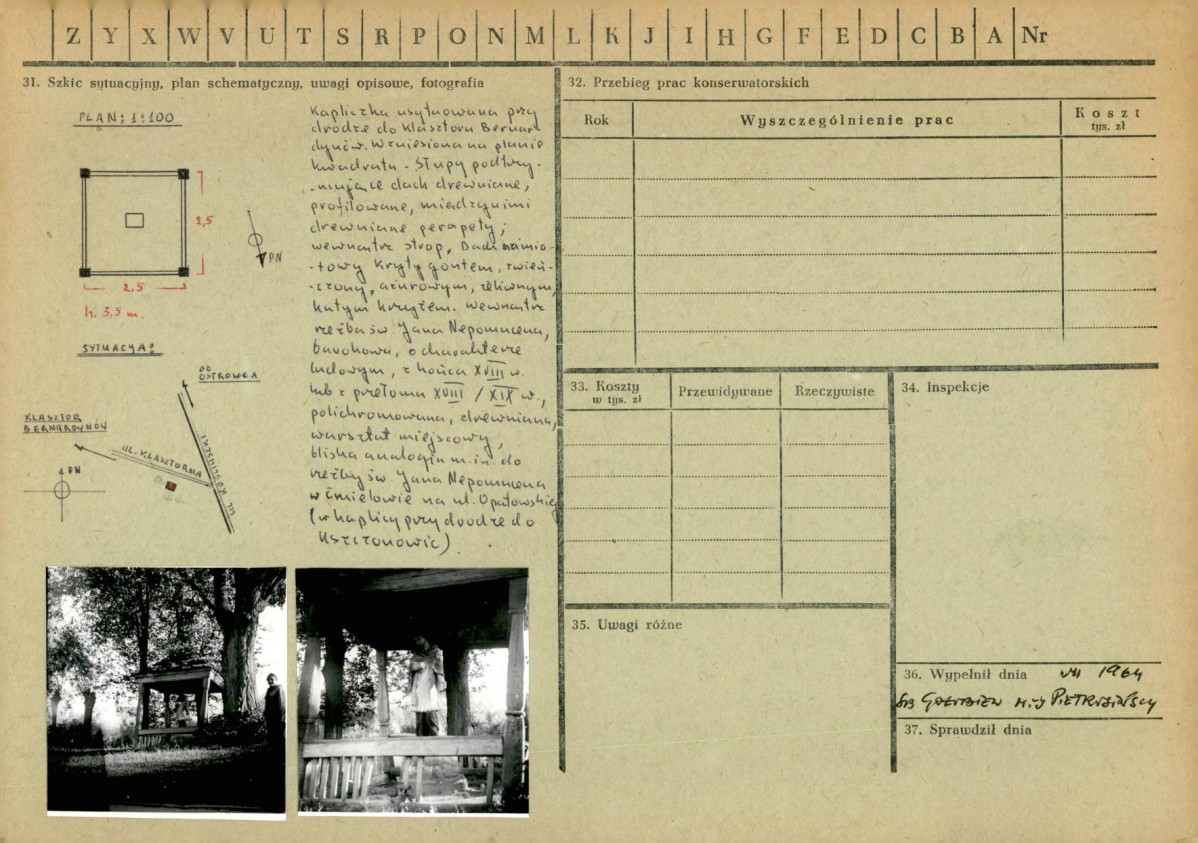 Z Y X W V U T S R P O N M L K J I H G F E D C B A Nr
31. Szkic sytuacyjny, plan schematyczny, uwagi opisowe, fotografia
PLAN: 1:100
2,5
2,5
h. 3,5 m.
PN
SYTUACJA:
DO
OSTROWCA
KLASZTOR
BERNARDYNÓW
UL. KLASZTORNA
UL. KOŚCIUSZKI
PN
Kapliczka usytuowana przy
drodze do klasztoru Bernar-
dynów. Wzniesiona na planie
kwadratu. Słupy podtrzy-
-mujące dach drewniane,
profilowane, między nimi
drewniane parapety;
wewnątrz strop. Dach namio-
-towy kryty gontem, zwień-
-czony, ażurowym, żeliwnym,
kutym krzyżem. Wewnątrz
rzeźba św. Jana Nepomucena,
barokowa, o charakterze
ludowym, z końca XVIII w.
lub z przełomu XVIII / XIX w.,
polichromowana, drewniana,
warsztat miejscowy,
bliska analogia m.in. do
rzeźby św. Jana Nepomucena
w Ćmielowie na ul. Opatowskiej
(w kaplicy przy drodze do
)
32. Przebieg prac konserwatorskich
Rok
Wyszczególnienie prac
Koszt
tys. zł
33. Koszty
w tys. zł
Przewidywane
Rzeczywiste
34. Inspekcje
35. Uwagi różne
36. Wypełnił dnia VII 1964
37. Sprawdził dnia